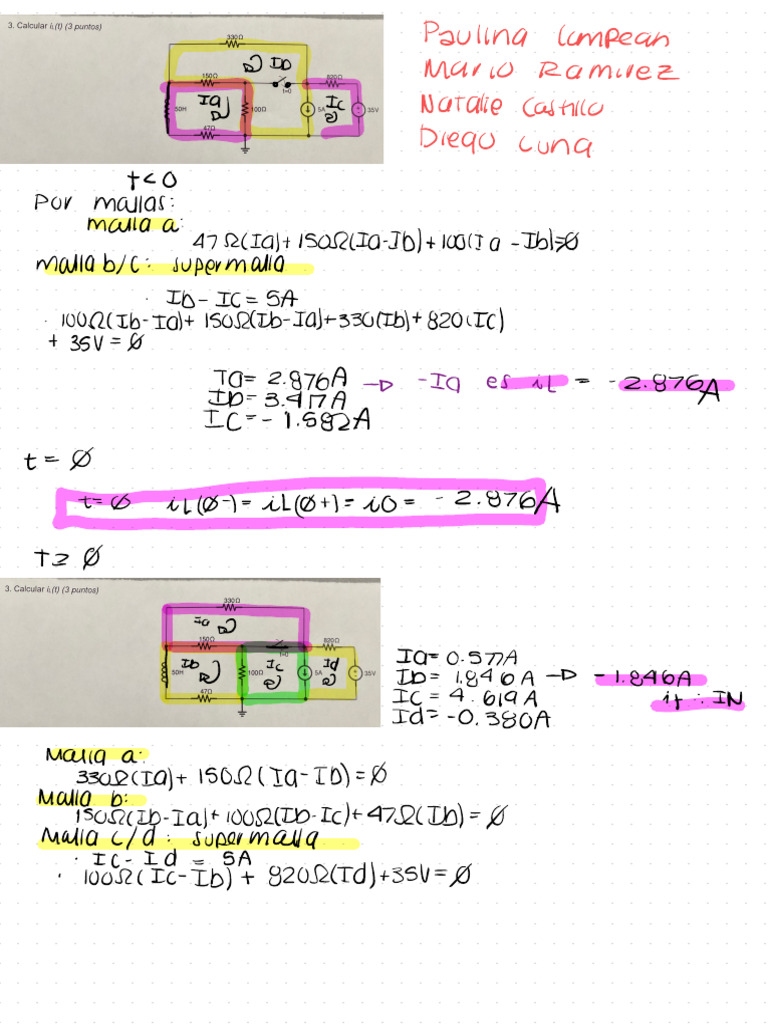 3. Calcular iL(t) (3 puntos)
330Ω
IB
150Ω
820Ω
t=0
50H
Ia
100Ω
5A
Ic
35V
47Ω
Paulina Campean
Mario Ramirez
Natalie Castillo
Diego Luna
t<0
Por mallas:
malla a:
47Ω(Ia)+150Ω(Ia-Ib)+100(Ia-Ib)=0
malla b/c: supermalla
· Ib-Ic=5A
· 100Ω(Ib-Ia)+150Ω(Ib-Ia)+330(Ib)+820(Ic)
+ 35V=0
Ia= 2.876A → -Ia es iL = -2.876A
Ib= 3.417A
Ic=-1.582A
t=0
t=0 iL(0-)=iL(0+)=i0= -2.876A
t≥0
3. Calcular iL(t) (3 puntos)
330Ω
ia
150Ω
820Ω
t=0
50H
Ib
100Ω
Ic
5A
Id
35V
47Ω
Ia=0.577A
Ib= 1.846A → -1.846A
Ic= 4.619A if ∴ IN
Id=-0.380A
Malla a:
330Ω(Ia)+150Ω(Ia-Ib)=0
Malla b:
150Ω(Ib-Ia)+100Ω(Ib-Ic)+47Ω(Ib)=0
Malla c/d: supermalla
· Ic-Id = 5A
· 100Ω(Ic-Ib)+820Ω(Id)+35V=0